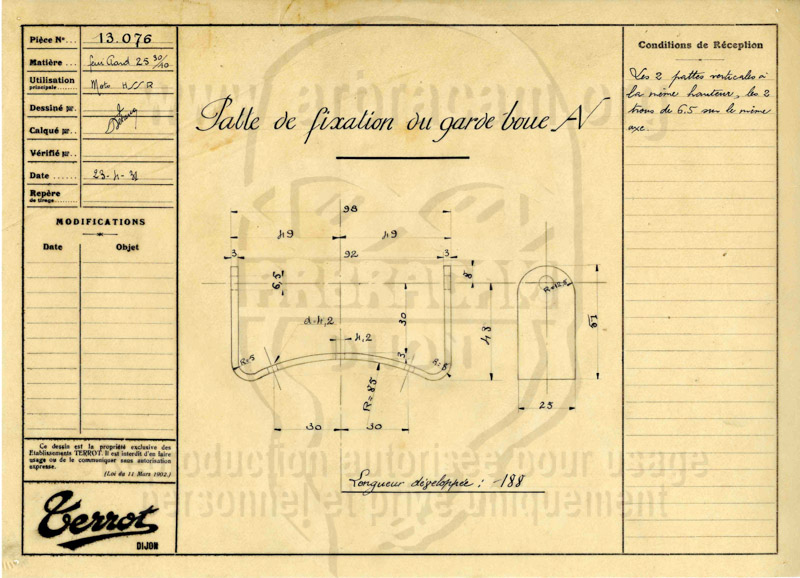 Pièce N° ... 13.076
Matière ... feuillard 25 30/40
Utilisation principale ... Moto H S R
Dessiné par
Calqué par
Vérifié par
Date ... 23-4-31
Repère de tirage
MODIFICATIONS
Date Objet
Ce dessin est la propriété exclusive des
Etablissements TERROT. Il est interdit d'en faire
usage ou de le communiquer sans autorisation
expresse.
(Loi du 11 Mars 1902.)
Terrot
DIJON
Patte de fixation du garde boue AV
98
49 49
3 92 3
6,5
8
R=12,5
d=4,2
30
48
4,2
3
R=5
R=5
R=85
30 30
25
Longueur développée : 188
Conditions de Réception
Les 2 pattes verticales à
la même hauteur, les 2
trous de 6.5 sur le même
axe.
www.arbracam.org
ARBRACAM
DIJON
Reproduction autorisée pour usage
personnel et privé uniquement